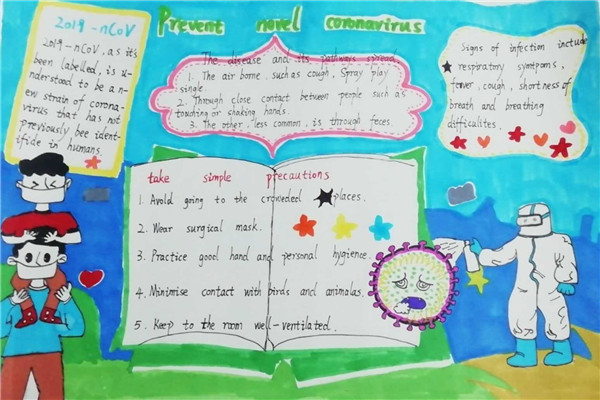 Prevent novel coronavirus
2019-nCoV
2019-nCoV, as it's
been labelled, is u-
nderstood to be a n-
ew strain of corona-
virus that has not
previously bee ident-
ifide in humans.
The disease and its pathways spread.
1. The air borne, such as cough, Spray play
single.
2. Through close contact between people such as
touching or shaking hands.
3. The other, less common, is through feces.
Signs of infection include
respiratory symtpoms,
fever, cough, shortness of
breath and breathing
difficultes.
take simple precautions
1. Avold going to the crowded places.
2. Wear surgical mask.
3. Practice good hand and personal hygience.
4. Minimise contact with birds and animalas.
5. Keep to the room well-ventilated.